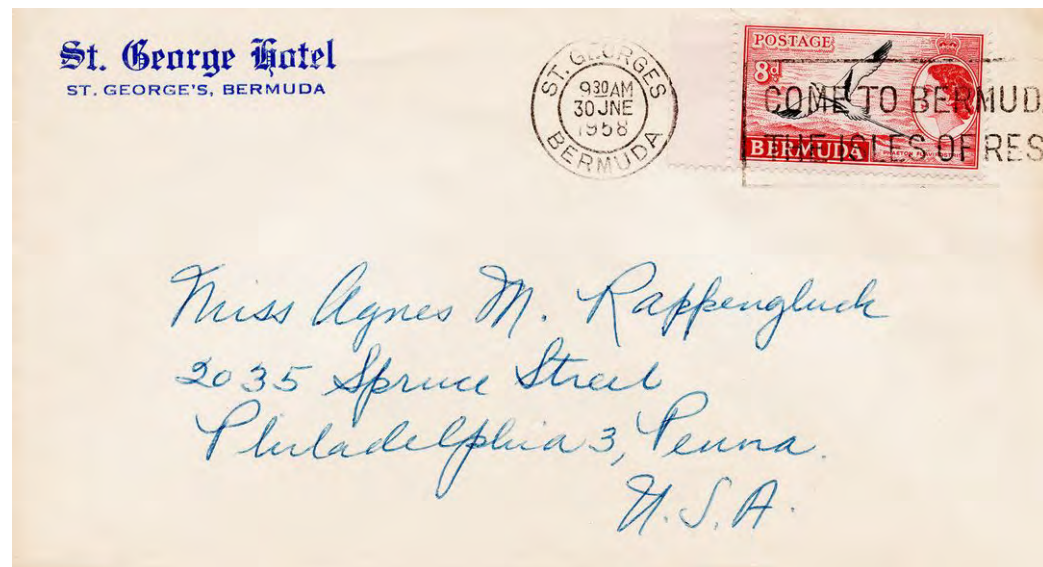 St. George Hotel
ST. GEORGE'S, BERMUDA
ST. GEORGES
9 30 AM
30 JNE
1958
BERMUDA
POSTAGE
8d
COME TO BERMUD
THE ISLES OF RES
BERMUDA
Miss Agnes M. Rappengluck
2035 Spruce Street
Philadelphia 3, Penna.
U.S.A.